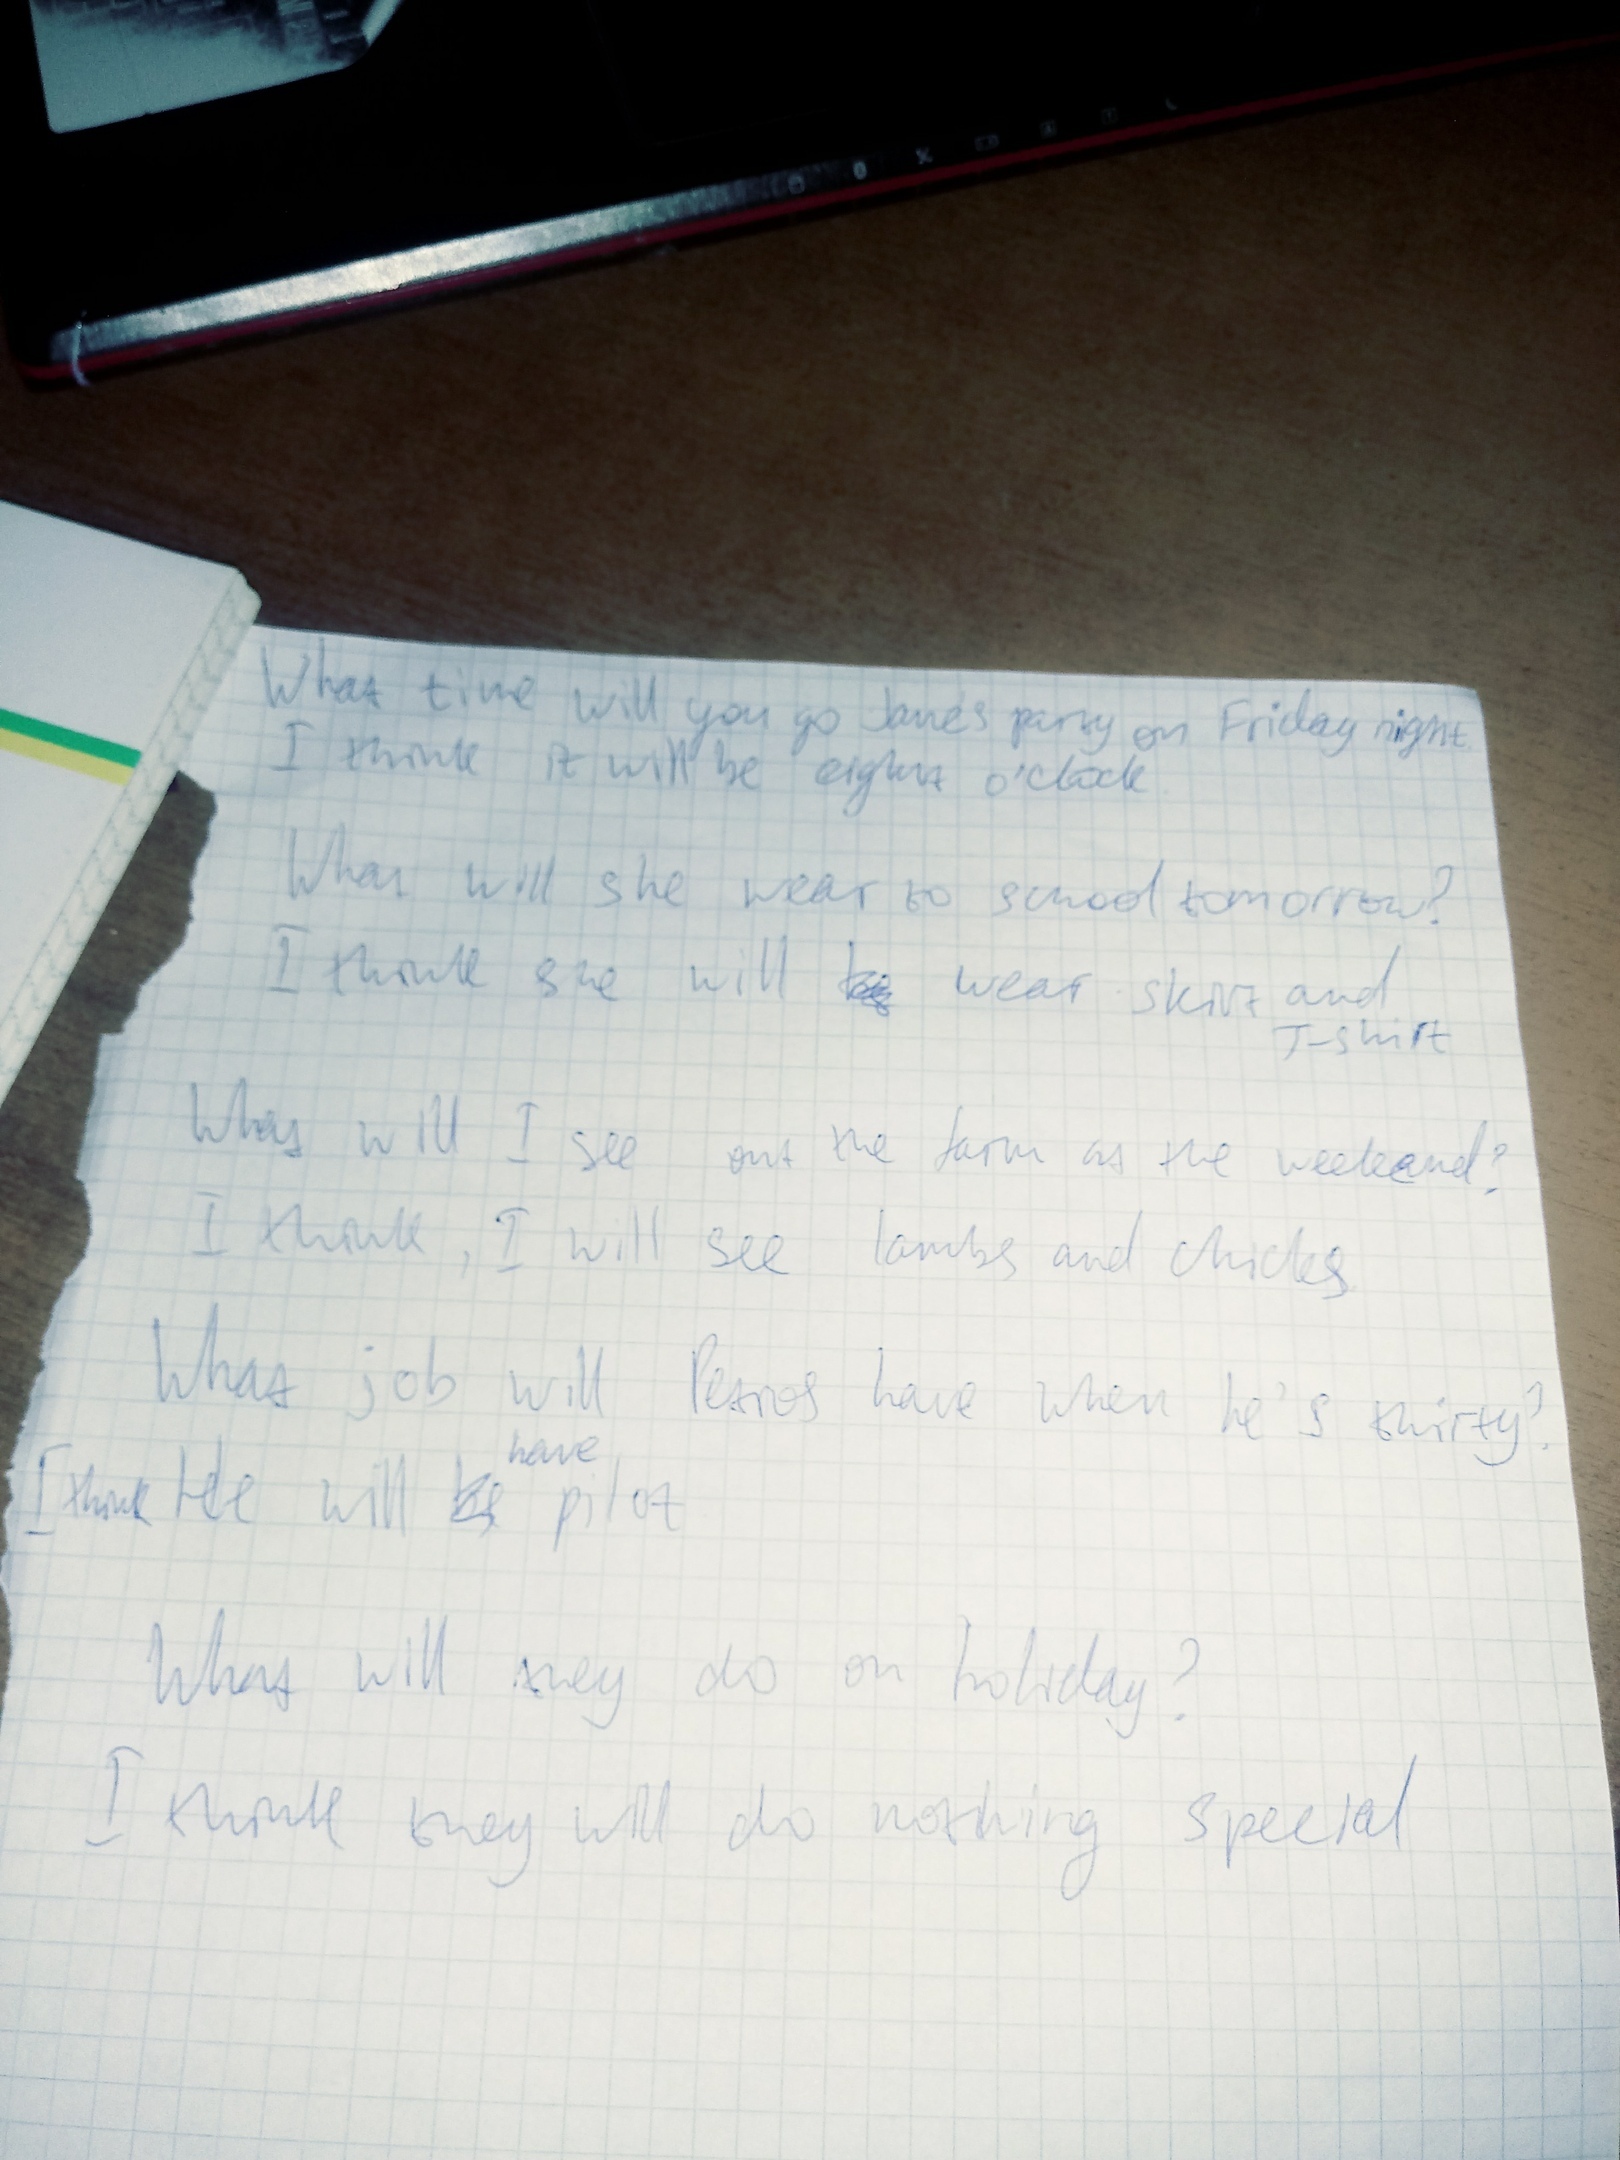 What time will you go Jane's party on Friday night
I think it will be eight o'clock
What will she wear to school tomorrow?
I think she will wear skirt and
T-shirt
What will I see out the farm at the weekend?
I think, I will see lambs and chicks
What job will Petros have when he's thirty?
have
I think He will be pilot
What will they do on holiday?
I think they will do nothing special